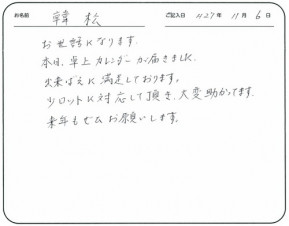 お名前 韓松 ご記入日 H27年11月6日
お世話になります。
本日、卓上カレンダーが届きました。
出来ばえに満足しております。
少ロットに対応して頂き、大変助かってます。
来年もぜひお願いします。